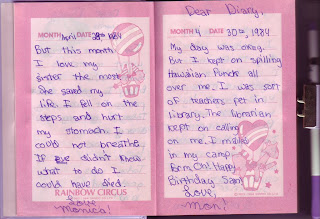 MONTH April DATE 28th 1984
But this month
I love my
sister the most
She saved my
life. I fell on the
steps and hurt
my stomach. I
could not breathe.
If didn't know
what to do I
could have died.
RAINBOW CIRCUS
Love,
Monica!
Dear Diary,
MONTH 4 DATE 30th, 1984
My day was okay.
But I kept on spilling
Hawaiian Punch all
over me. I was sort
of teachers pet in
library. The librarian
kept on calling
on me. I mailed
in my camp
form. Oh! Happy
Birthday Sam!
Love,
Mon!